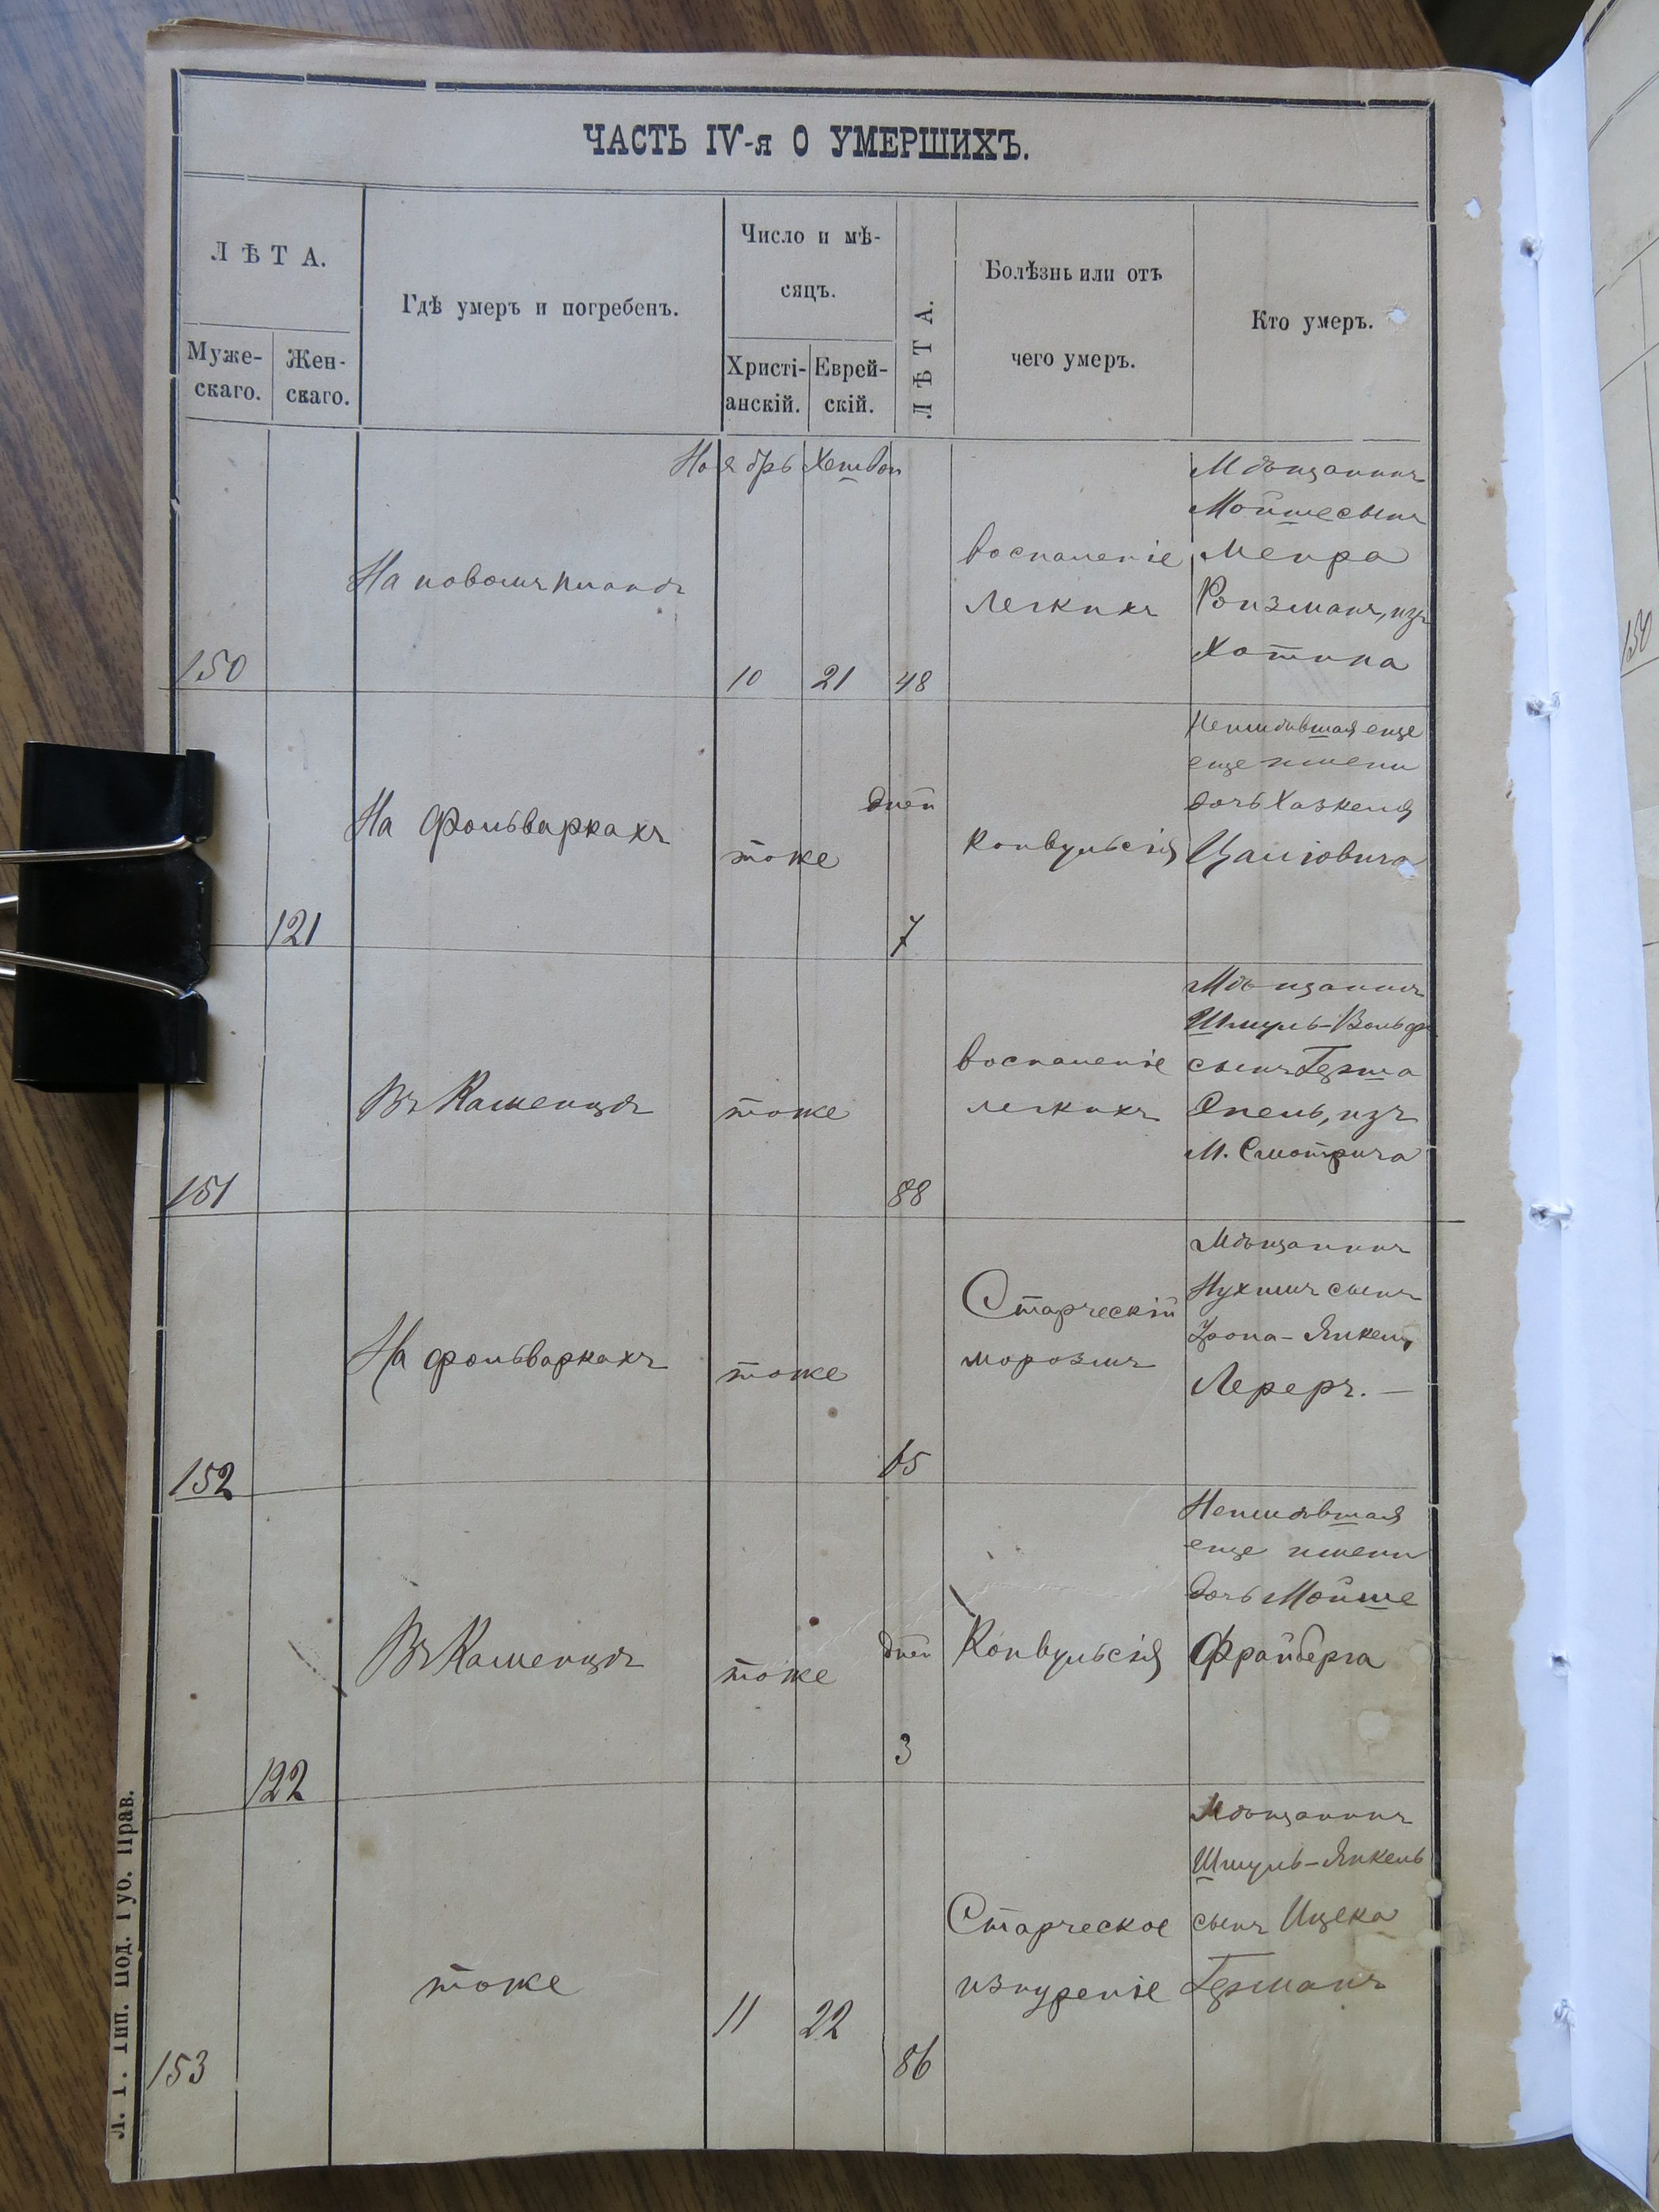 ЧАСТЬ IV-я О УМЕРШИХЪ.
ЛѢТА.
Муже-
скаго.
Жен-
скаго.
Гдѣ умеръ и погребенъ.
Число и мѣ-
сяцъ.
Христі-
анскій.
Еврей-
скій.
ЛѢТА.
Болѣзнь или отъ
чего умеръ.
Кто умеръ.
Ноябрь Хешван
150
На новомъ планѣ
10 21 48
воспаленіе
легкихъ
Мѣщанинъ
Мойше сынъ
Меира
Ройзманъ, изъ
Хотина
121
На Фольваркахъ
тоже
дней
7
конвульсія
Неимѣвшая еще
еще имени
дочь Хаскеля
151
Въ Каменцѣ
тоже
88
воспаленіе
легкихъ
Мѣщанинъ
Шмуль-Вольф
сынъ Герша
Опель, изъ
М. Смотрича
152
На фольваркахъ
тоже
65
Старческій
морозмъ
Мѣщанинъ
Нухимъ сынъ
Янкеля
Лереръ. —
122
Въ Каменцѣ
тоже
дней
3
Конвульсія
Неимѣвшая
еще имени
дочь Мойше
Фрайберга
153
тоже
11 22
86
Старческое
изнуреніе
Мѣщанинъ
Шмуль-Янкель
сынъ Ицека
Германъ
Л. Г. Тип. Под. Губ. Прав.
150